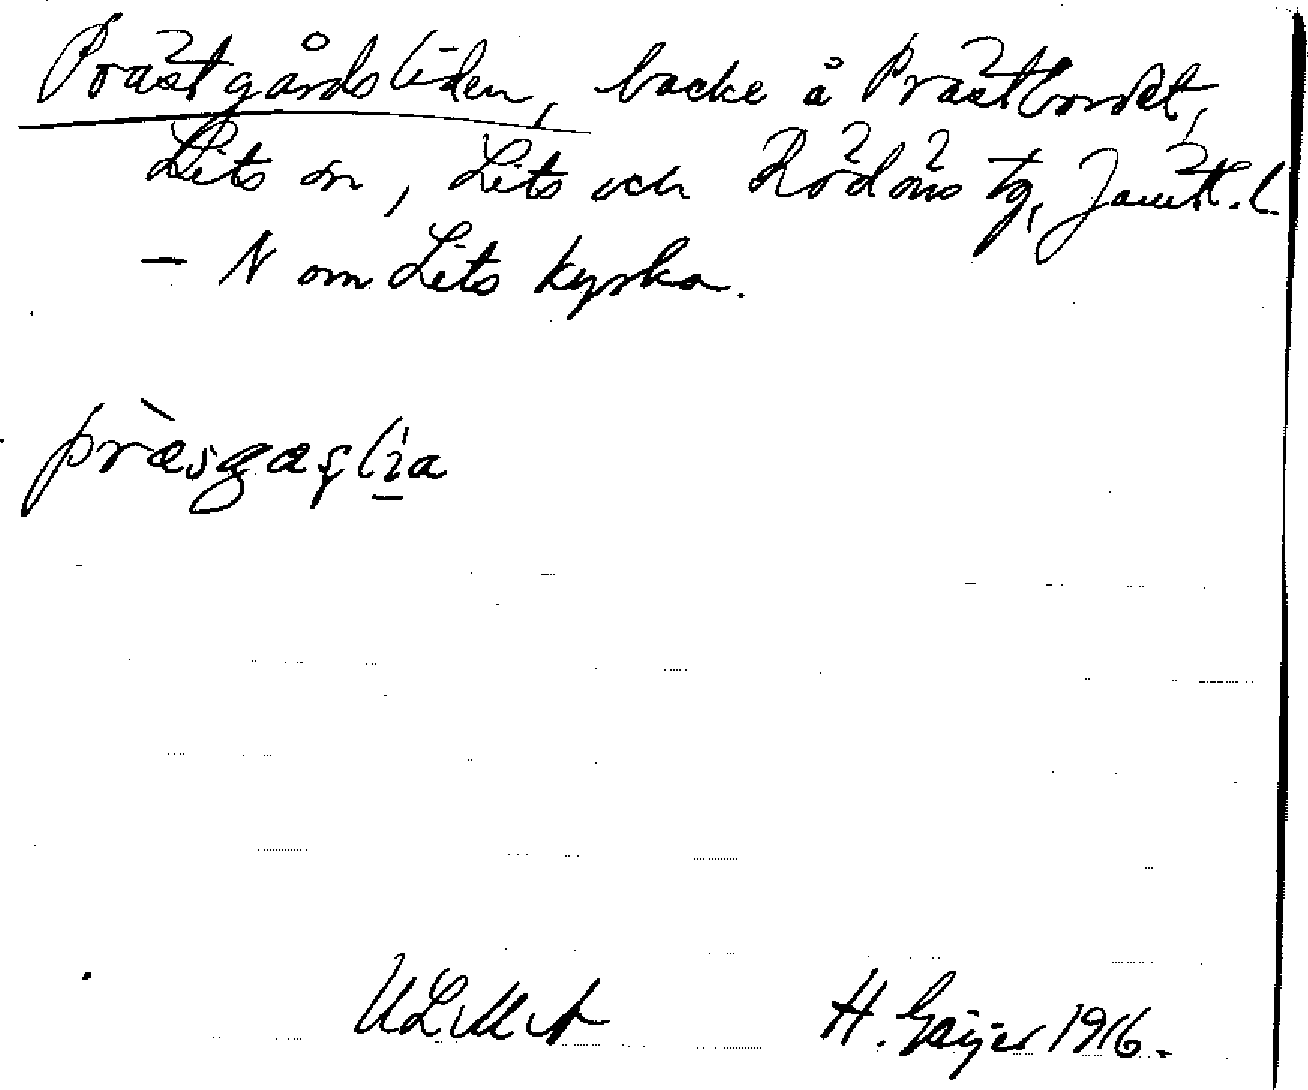 Prästgårdsliden, backe å Prästbordet,
Lits sn, Lits och Rödöns tg, Jämtl. l.
– N om Lits kyrka.
præsgaʂlia
H. Geijer 1916.